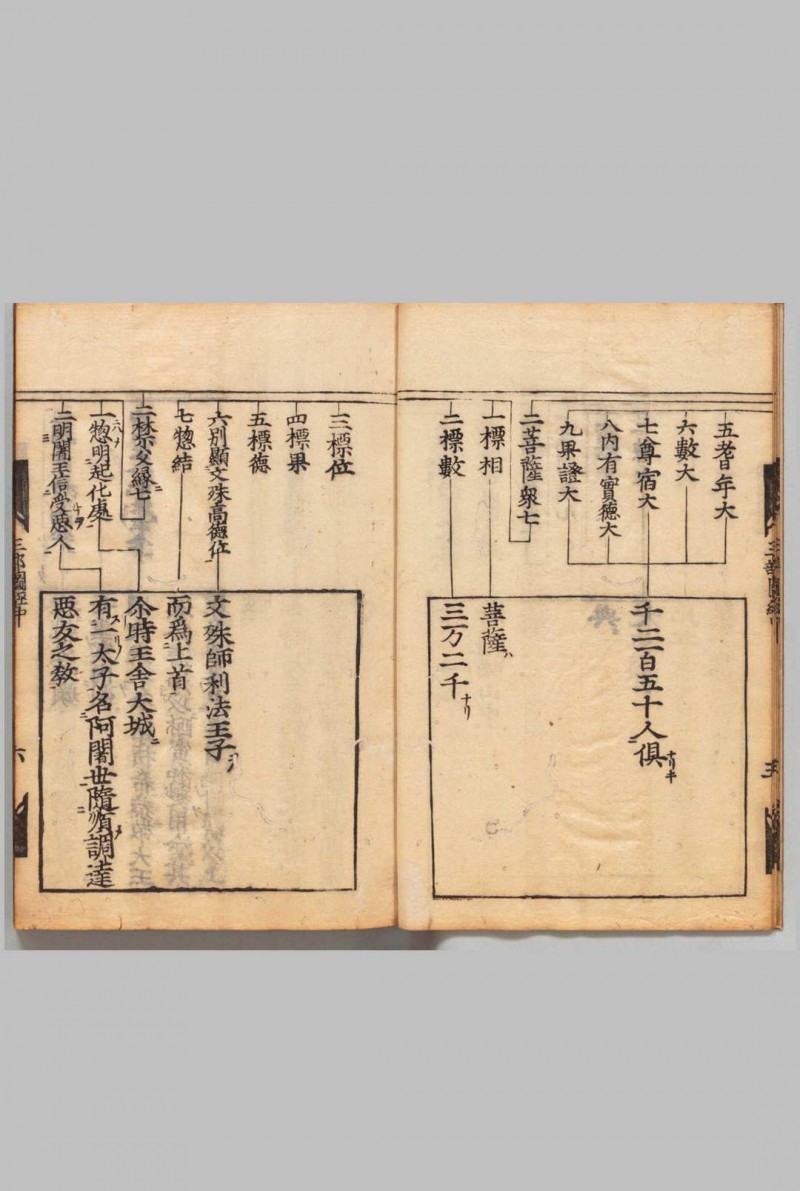 五耆年大
六數大
七尊宿大
八内有實德大
九果證大
二菩薩衆七
一標相
二標數
千二百五十人俱ナリキ
菩薩ハ
三万二千ナリ
三標位
四標果
五標德
六別顯文殊高德位
七惣結
二禁父縁七
一惣明起化處
二明闍王信受惡人
文殊師利法王子
而爲上首
尒時王舍大城
有一太子名阿闍世隨順調達
惡友之教
六